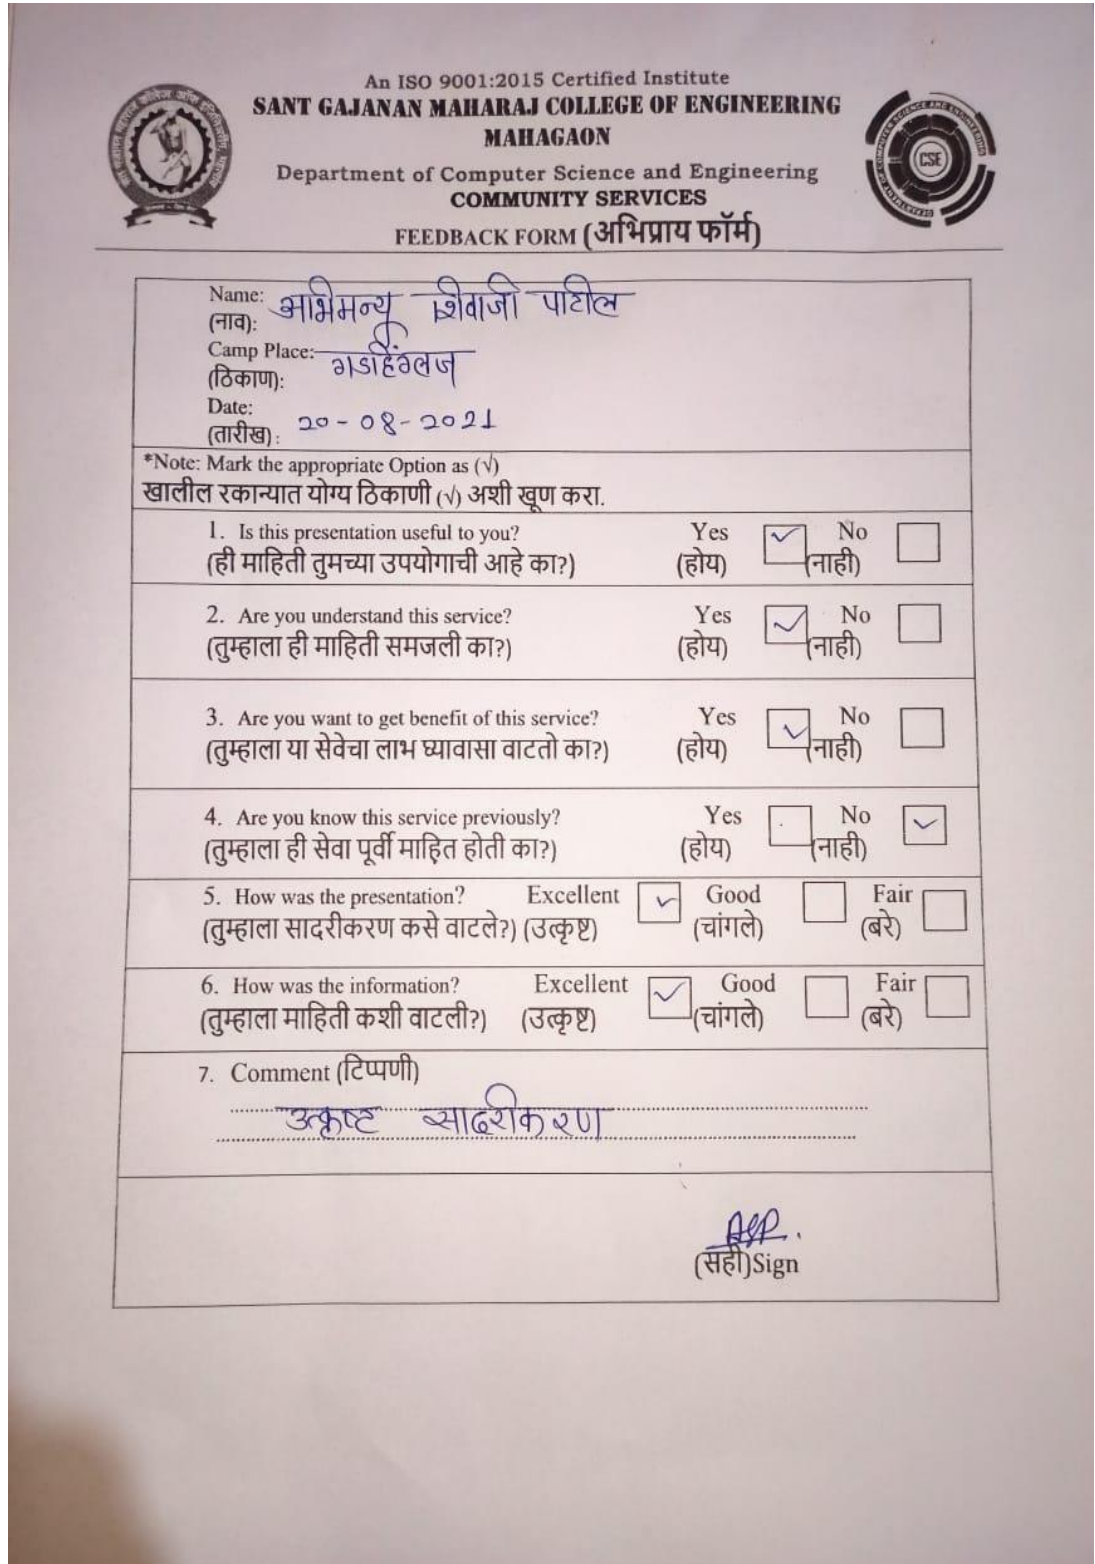 An ISO 9001:2015 Certified Institute
SANT GAJANAN MAHARAJ COLLEGE OF ENGINEERING
MAHAGAON
Department of Computer Science and Engineering
COMMUNITY SERVICES
FEEDBACK FORM (अभिप्राय फॉर्म)
CSE
Name: अभिमन्यू शिवाजी पाटील
(नाव):
Camp Place: गडहिंग्लज
(ठिकाण):
Date:
(तारीख): 20-08-2021
*Note: Mark the appropriate Option as (√)
खालील रकान्यात योग्य ठिकाणी (√) अशी खूण करा.
1. Is this presentation useful to you? Yes ✓ No
(ही माहिती तुमच्या उपयोगाची आहे का?) (होय) (नाही)
2. Are you understand this service? Yes ✓ No
(तुम्हाला ही माहिती समजली का?) (होय) (नाही)
3. Are you want to get benefit of this service? Yes ✓ No
(तुम्हाला या सेवेचा लाभ घ्यावासा वाटतो का?) (होय) (नाही)
4. Are you know this service previously? Yes No ✓
(तुम्हाला ही सेवा पूर्वी माहित होती का?) (होय) (नाही)
5. How was the presentation? Excellent ✓ Good Fair
(तुम्हाला सादरीकरण कसे वाटले?) (उत्कृष्ट) (चांगले) (बरे)
6. How was the information? Excellent ✓ Good Fair
(तुम्हाला माहिती कशी वाटली?) (उत्कृष्ट) (चांगले) (बरे)
7. Comment (टिप्पणी)
उत्कृष्ट सादरीकरण
ASP.
(सही)Sign